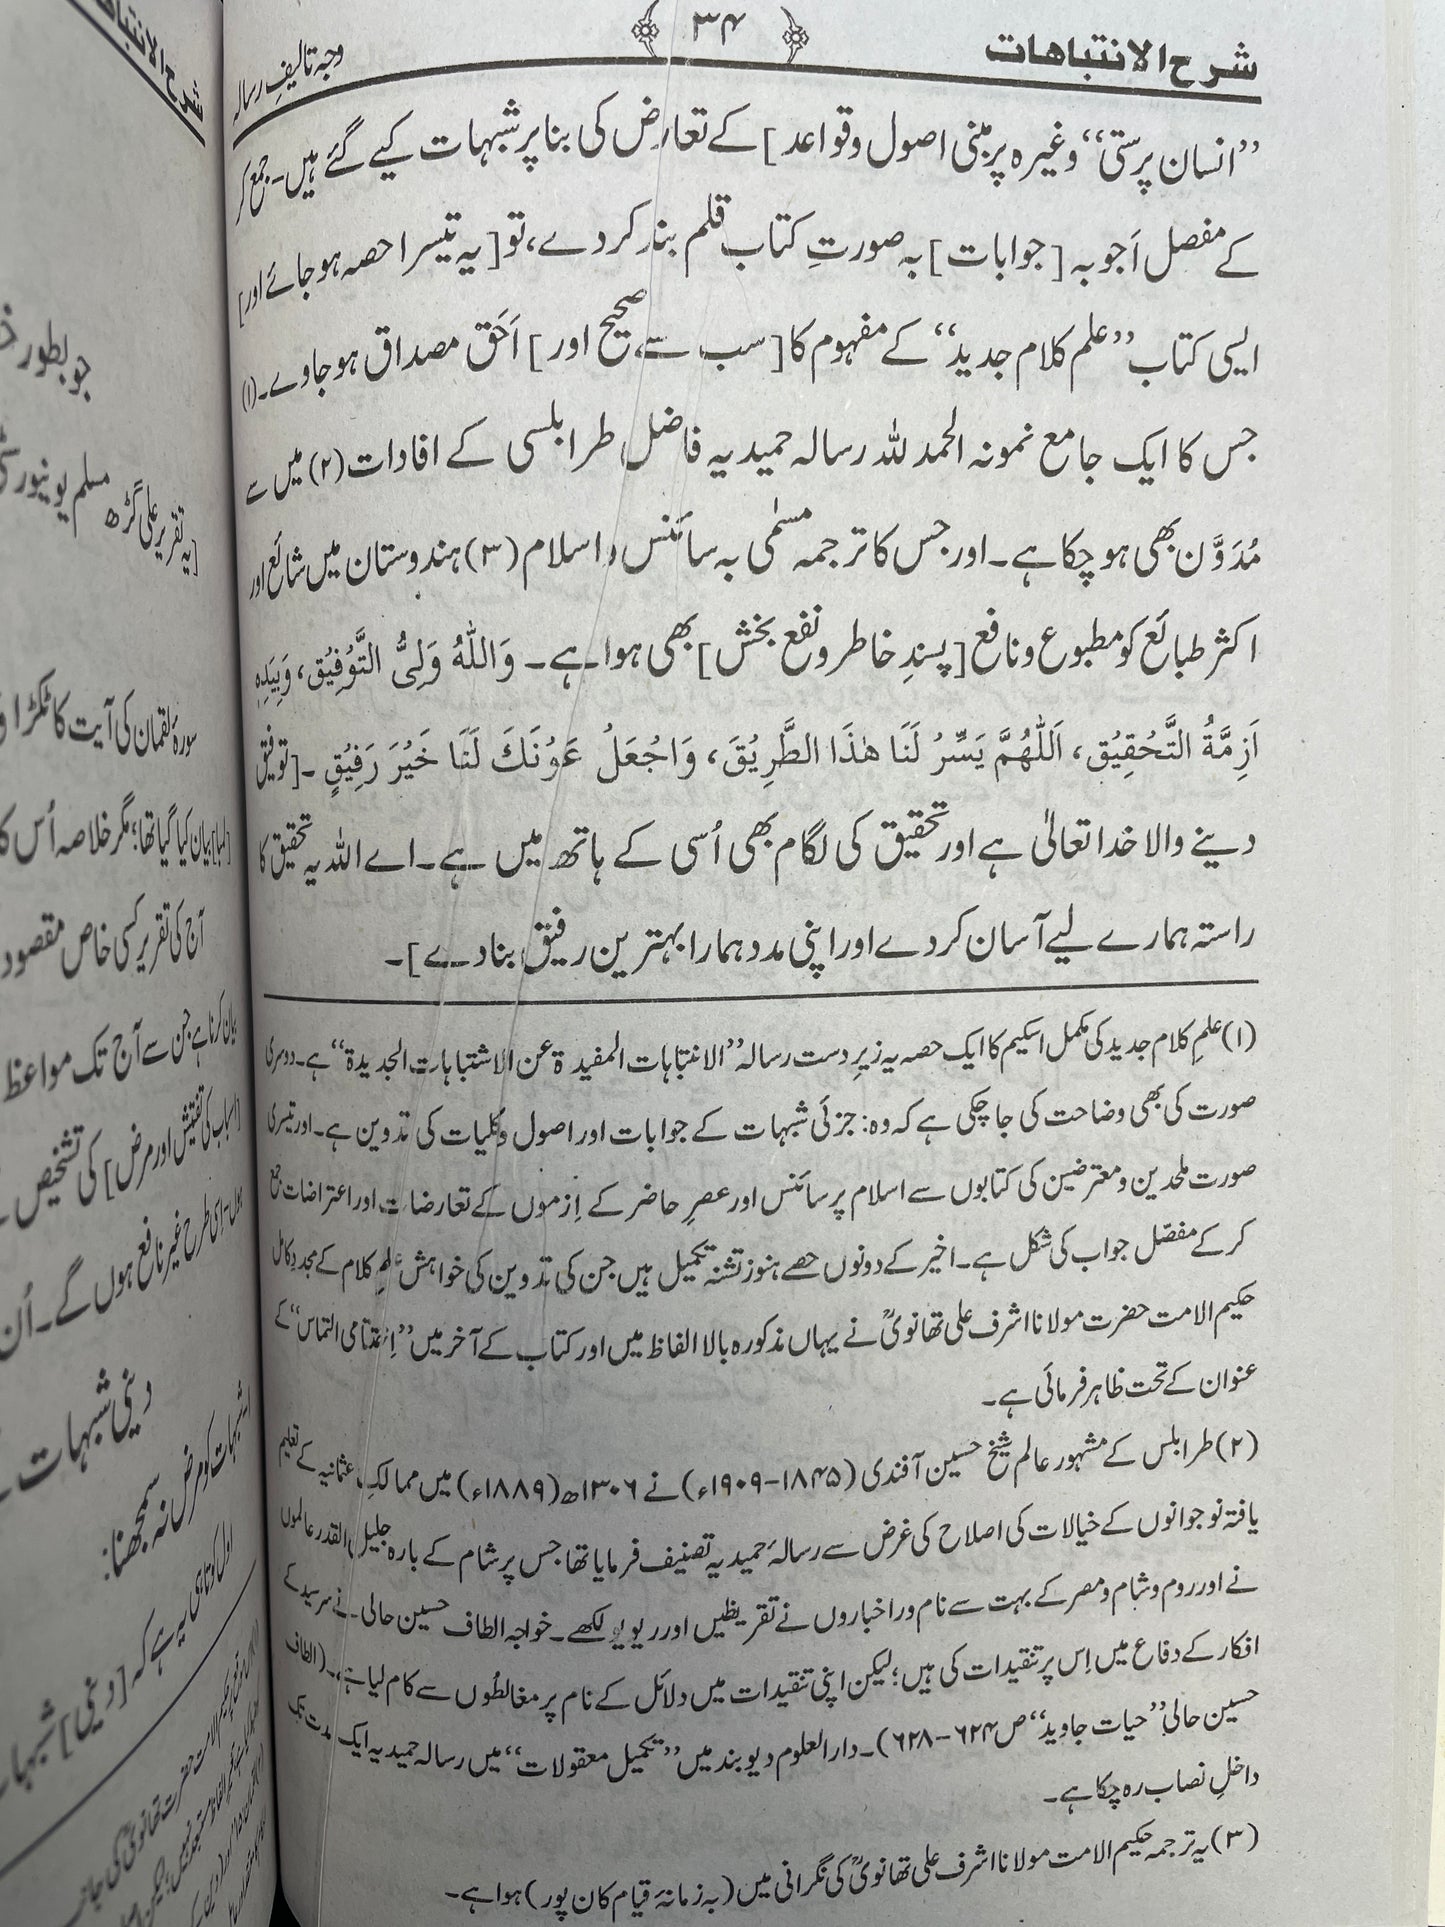 شرح الانتباہات
۳۴
وجہ تالیفِ رسالہ
’’انسان پرستی‘‘ وغیرہ پر مبنی اصول وقواعد] کے تعارض کی بنا پر شبہات کیے گئے ہیں۔ جمع کر
کے مفصل اَجوبہ [جوابات] بہ صورتِ کتاب قلم بند کردے، تو [یہ تیسرا حصہ ہوجائے اور]
ایسی کتاب ’’علم کلام جدید‘‘ کے مفہوم کا [سب سے صحیح اور] اَحَق مصداق ہوجاوے۔(۱)
جس کا ایک جامع نمونہ الحمد للہ رسالہ حمیدیہ فاضل طرابلسی کے افادات (۲) میں سے
مُدَوَّن بھی ہوچکا ہے۔ اور جس کا ترجمہ مسمّٰی بہ سائنس و اسلام (۳) ہندوستان میں شائع اور
اکثر طبائع کو مطبوع ونافع [پسندِ خاطر ونفع بخش] بھی ہوا ہے۔ وَاللّٰهُ وَلِیُّ التَّوْفِیْق، وَبِیَدِہٖ
اَزِمَّةُ التَّحْقِیْق، اَللّٰهُمَّ یَسِّرْ لَنَا هٰذَا الطَّرِیْقَ، وَاجْعَلْ عَوْنَكَ لَنَا خَیْرَ رَفِیْقٍ ۔ [توفیق
دینے والا خدا تعالیٰ ہے اور تحقیق کی لگام بھی اُسی کے ہاتھ میں ہے۔ اے اللہ یہ تحقیق کا
راستہ ہمارے لیے آسان کردے اور اپنی مدد ہمارا بہترین رفیق بنادے]۔
(۱) علمِ کلام جدید کی مکمل اسکیم کا ایک حصہ یہ زیرِ دست رسالہ ’’الانتباہات المفیدۃ عن الاشتباہات الجدیدۃ‘‘ ہے۔ دوسری
صورت کی بھی وضاحت کی جاچکی ہے کہ وہ: جزئی شبہات کے جوابات اور اصول وکلیات کی تدوین ہے۔ اور تیسری
صورت ملحدین ومعترضین کی کتابوں سے اسلام پر سائنس اور عصرِ حاضر کے اِزموں کے تعارضات اور اعتراضات جمع
کرکے مفصّل جواب کی شکل ہے۔ اخیر کے دونوں حصے ہنوز تشنۂ تکمیل ہیں جن کی تدوین کی خواہش علمِ کلام کے مجددِ کامل
حکیم الامت حضرت مولانا اشرف علی تھانویؒ نے یہاں مذکورہ بالا الفاظ میں اور کتاب کے آخر میں ’’اِختتامی التماس‘‘ کے
عنوان کے تحت ظاہر فرمائی ہے۔
(۲) طرابلس کے مشہور عالم شیخ حسین آفندی (۱۸۴۵-۱۹۰۹ء) نے ۱۳۰۶ھ (۱۸۸۹ء) میں ممالکِ عثمانیہ کے تعلیم
یافتہ نوجوانوں کے خیالات کی اصلاح کی غرض سے رسالۂ حمیدیہ تصنیف فرمایا تھا جس پر شام کے بارہ جلیل القدر عالموں
نے اور روم وشام ومصر کے بہت سے نام ور اخباروں نے تقریظیں اور ریویو لکھے۔ خواجہ الطاف حسین حالی نے سرسید کے
افکار کے دفاع میں اِس پر تنقیدات کی ہیں؛ لیکن اپنی تنقیدات میں دلائل کے نام پر مغالطوں سے کام لیا ہے۔ (الطاف
حسین حالی: ’’حیات جاوید‘‘ ص ۶۲۴-۶۲۸)۔ دار العلوم دیوبند میں ’’تکمیل معقولات‘‘ میں رسالہ حمیدیہ ایک مدت تک
داخلِ نصاب رہ چکا ہے۔
(۳) یہ ترجمہ حکیم الامت مولانا اشرف علی تھانویؒ کی نگرانی میں (بہ زمانۂ قیام کان پور) ہوا ہے۔
شرح الانتباہات
جو بطور
[یہ تقریر علی گڑھ مسلم یونیورسٹی
سورۂ لقمان کی آیت کا ٹکڑا
بیان کیا گیا تھا؛ مگر خلاصہ اُس کا
آج کی تقریر کسی خاص مقصود
بیان کرنا ہے جن سے آج تک مواعظ
[اسباب کی تفتیش اور مرض] کی تشخیص
اسی طرح غیر نافع ہوں گے۔ اُن
دینی شبہات
شبہات کو مرض نہ سمجھنا:
اول کوتاہی یہ ہے کہ [دینی] شبہات